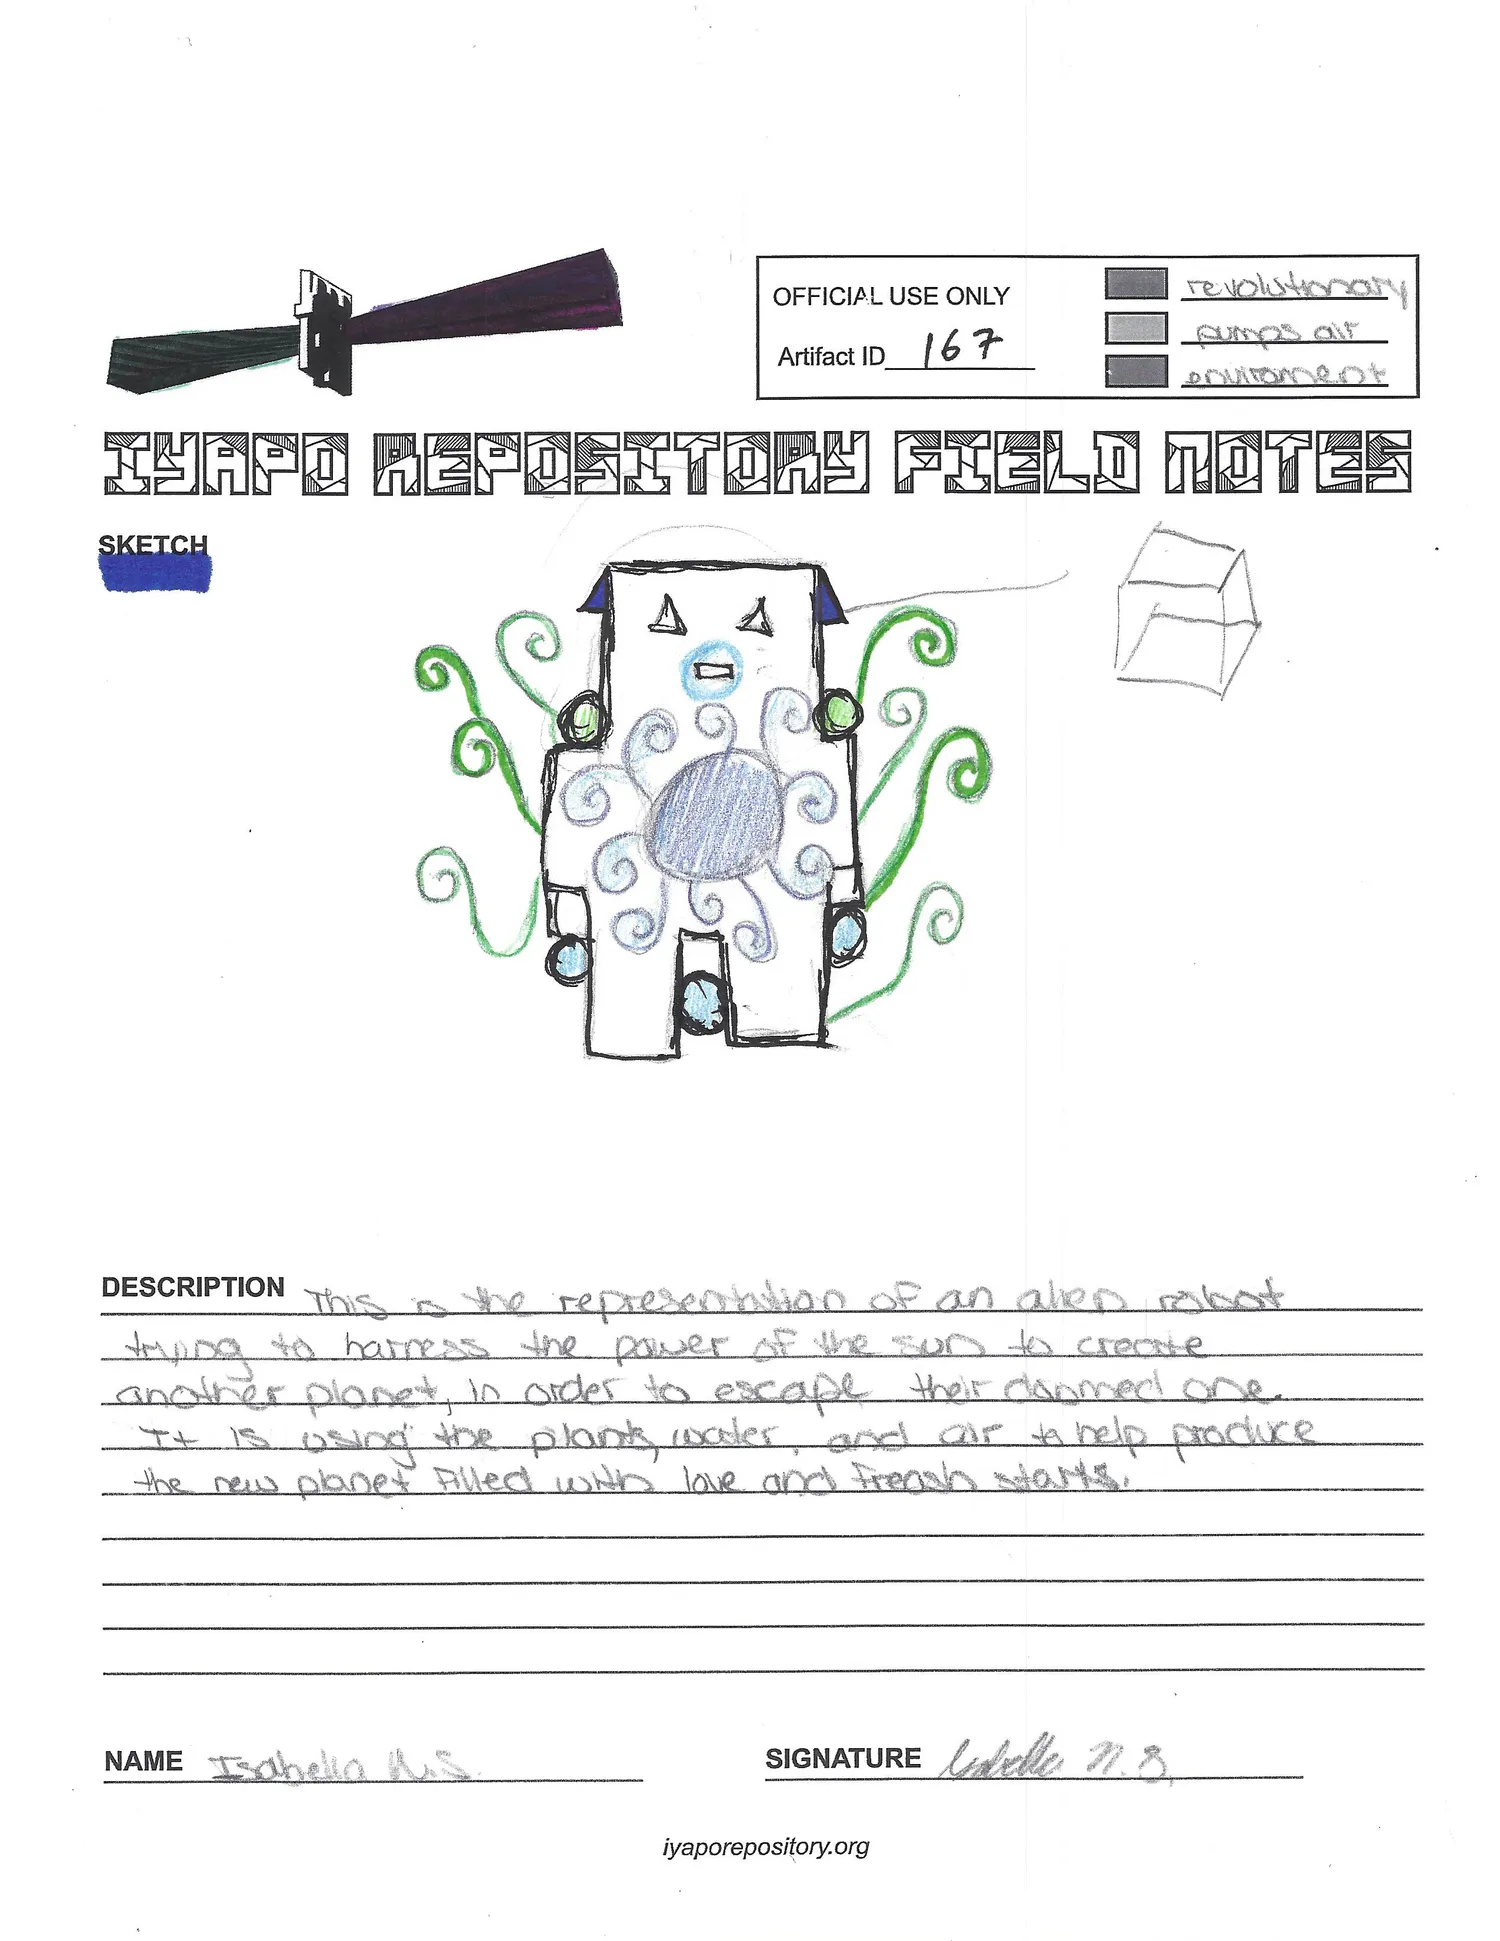 OFFICIAL USE ONLY
Artifact ID 167
revolutionary
pumps air
enviroment
IYAPO REPOSITORY FIELD NOTES
SKETCH
DESCRIPTION This is the representation of an alien robot
trying to harness the power of the sun to create
another planet, in order to escape their doomed one.
It is using the plants, water, and air to help produce
the new planet filled with love and freash starts.
NAME Isabella N.S.
SIGNATURE Isabella N.S.
iyaporepository.org